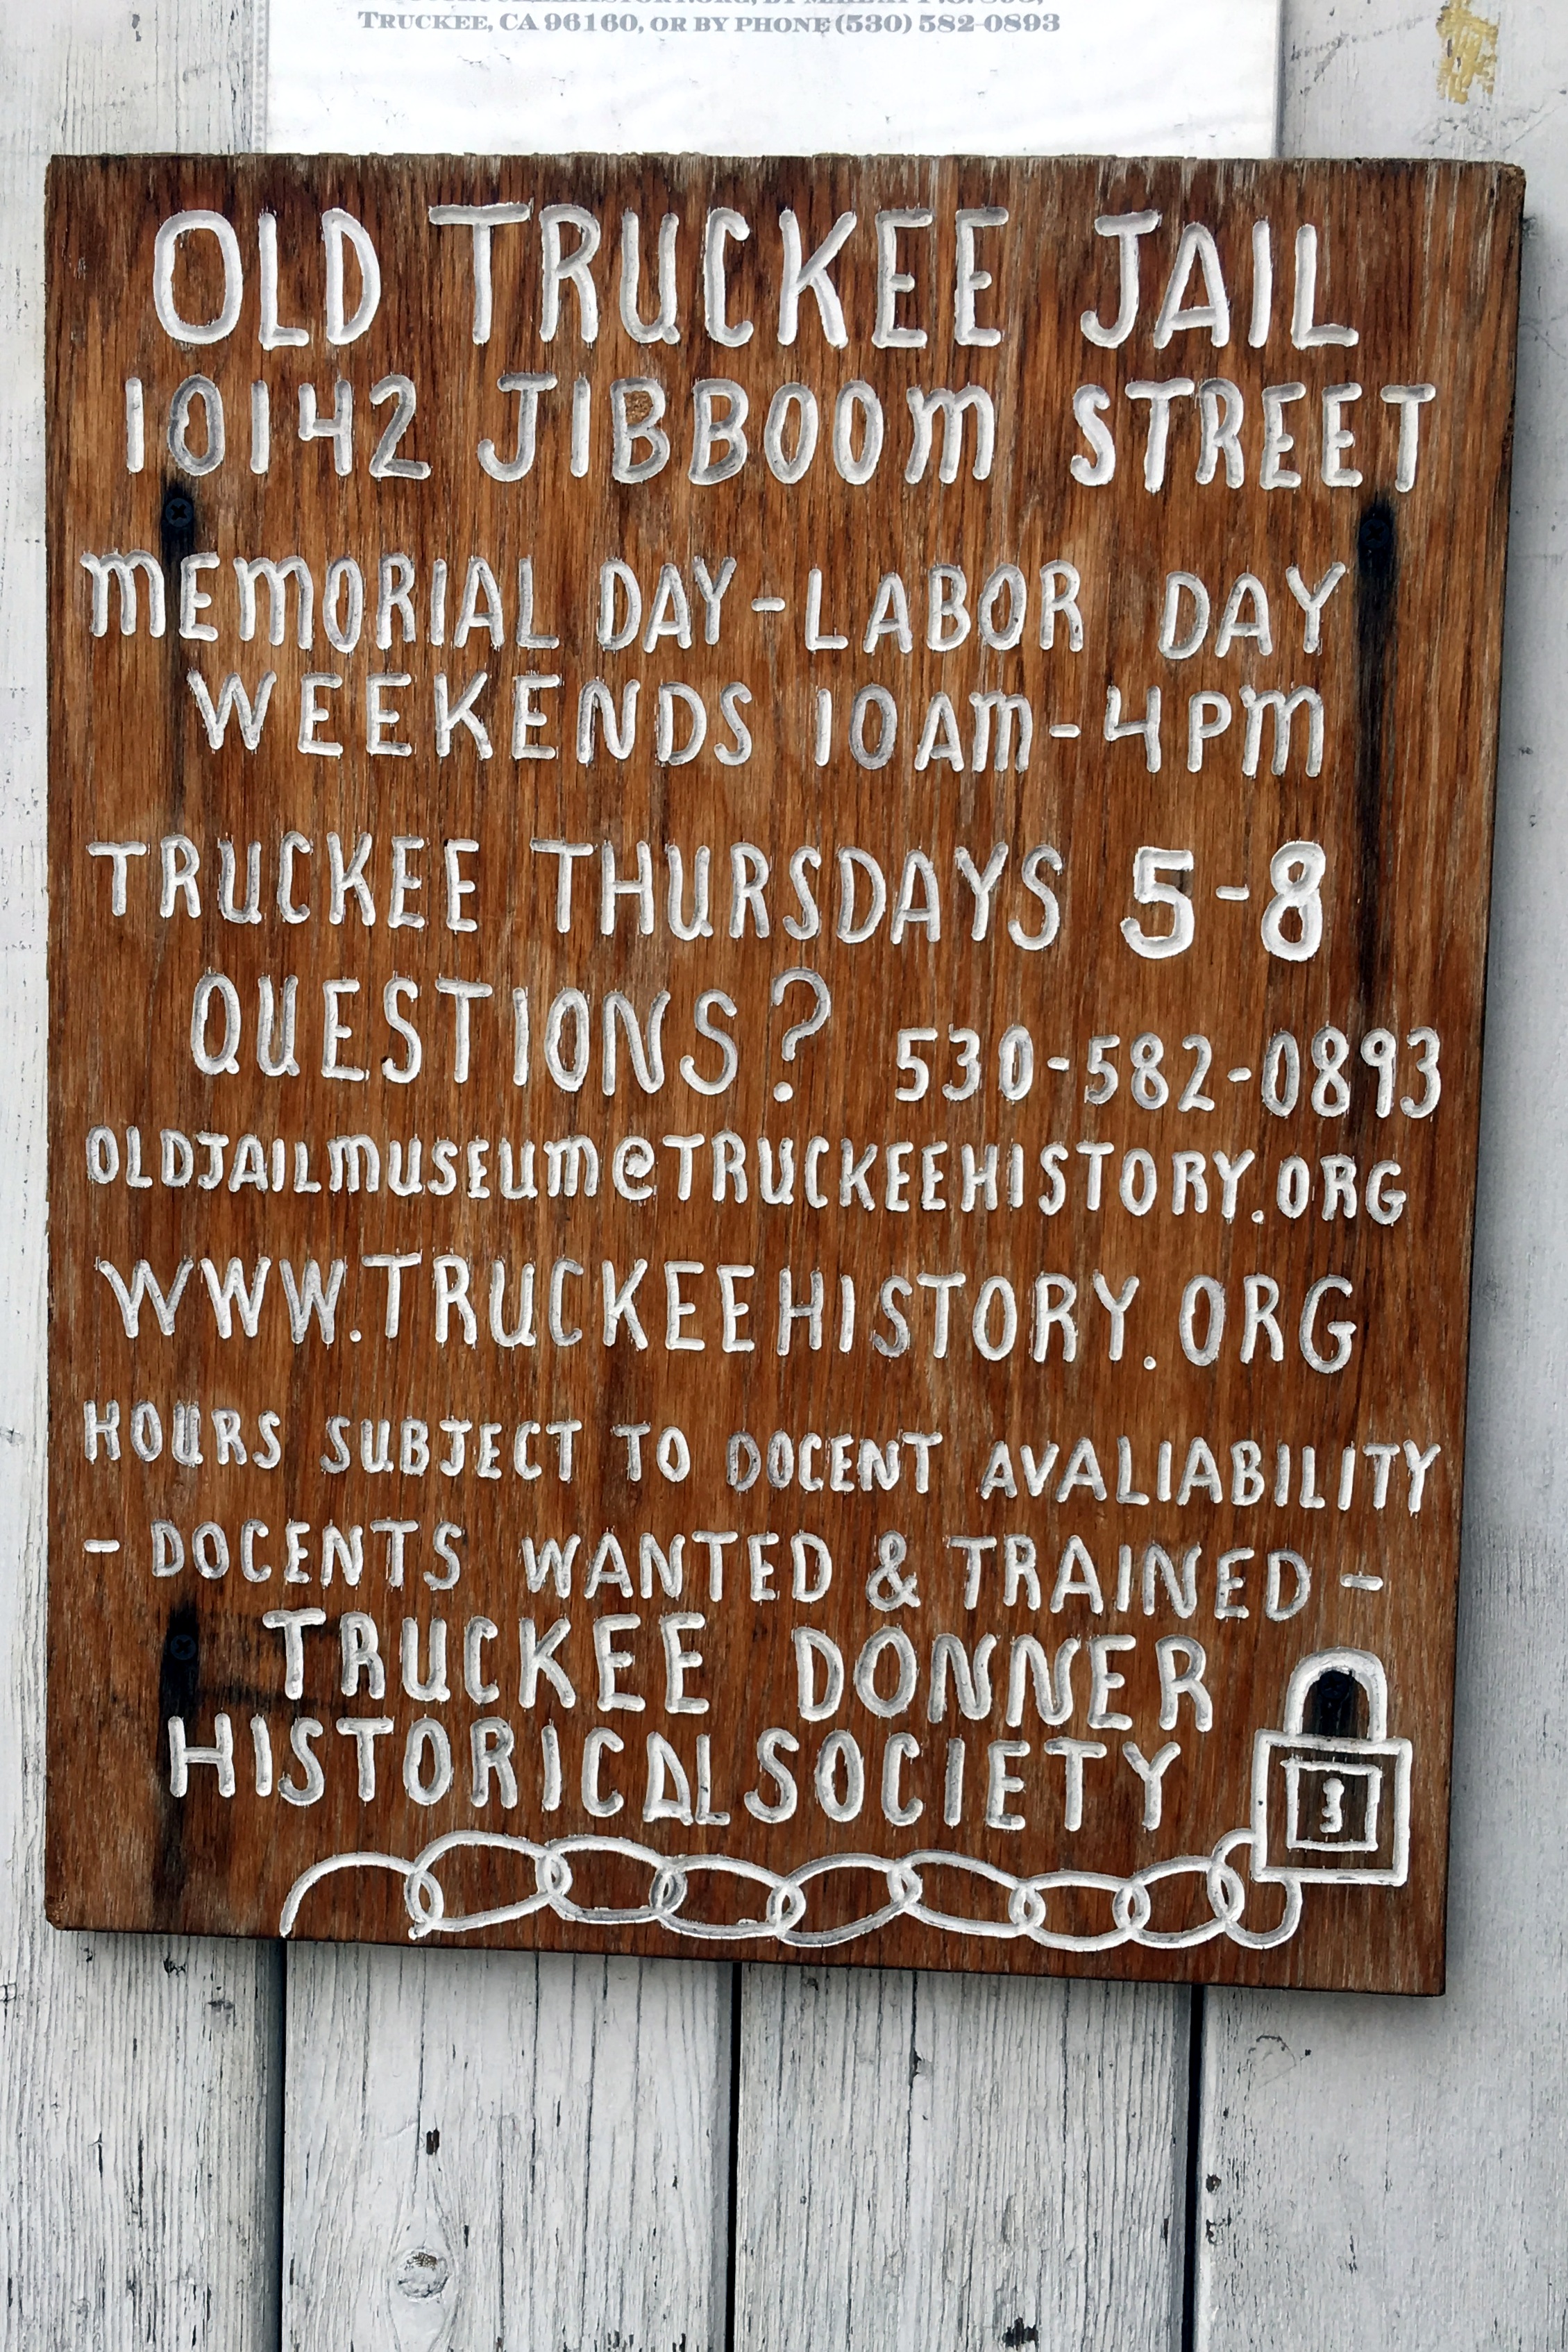 TRUCKEE, CA 96160, OR BY PHONE (530) 582-0893
OLD TRUCKEE JAIL
10142 JIBBOOM STREET
MEMORIAL DAY - LABOR DAY
WEEKENDS 10AM - 4PM
TRUCKEE THURSDAYS 5-8
QUESTIONS? 530-582-0893
OLDJAILMUSEUM@TRUCKEEHISTORY.ORG
WWW.TRUCKEEHISTORY.ORG
HOURS SUBJECT TO DOCENT AVALIABILITY
- DOCENTS WANTED & TRAINED -
TRUCKEE DONNER
HISTORICAL SOCIETY